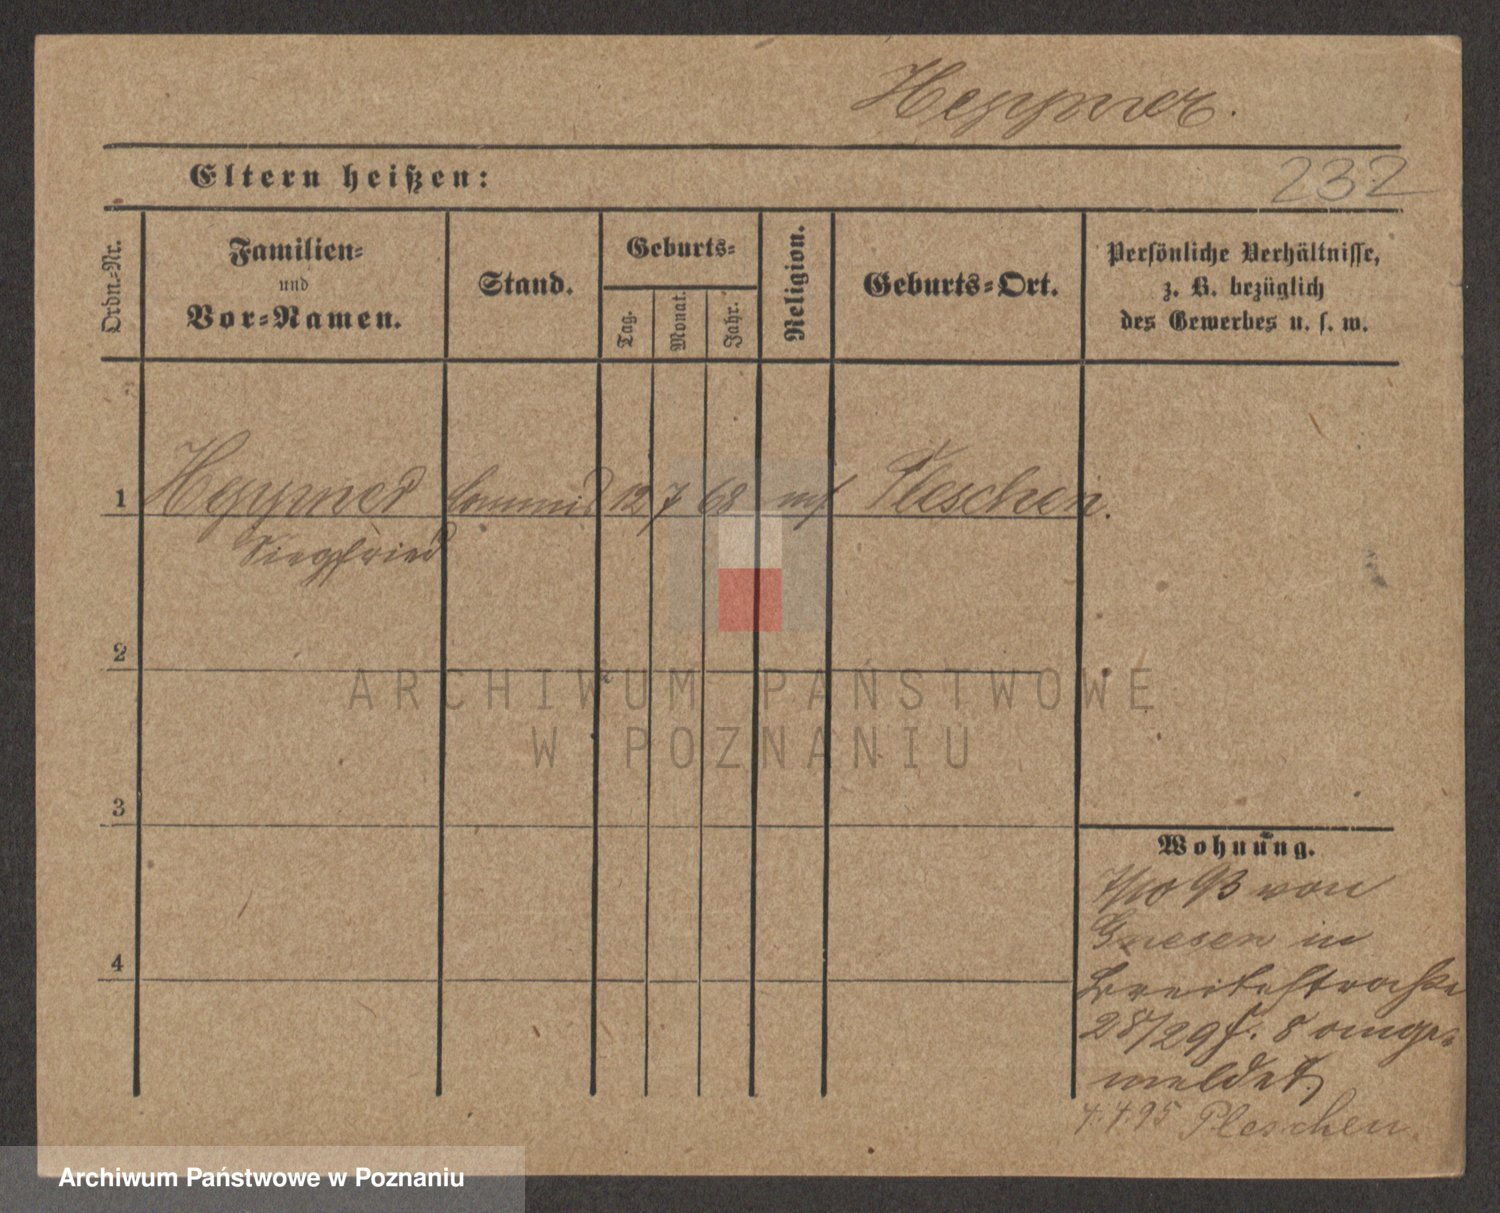 Heppner.
Eltern heißen:
232
Ordn.=Nr.
Familien=
und
Vor=Namen.
Stand.
Geburts=
Tag.
Monat.
Jahr.
Religion.
Geburts=Ort.
Persönliche Verhältnisse,
z. B. bezüglich
des Gewerbes u. s. w.
1 Heppner Commis 12 7 68 mos Pleschen.
Siegfried
2
3
4
ARCHIWUM PAŃSTWOWE
W POZNANIU
Wohnung.
7/10 93 von
Gnesen in
Breitestraße
28/29 b. S ange=
meldet
4.4.95 Pleschen.
Archiwum Państwowe w Poznaniu